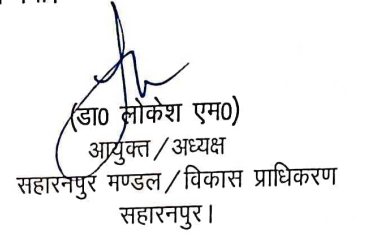 (डा0 लोकेश एम0)
आयुक्त / अध्यक्ष
सहारनपुर मण्डल / विकास प्राधिकरण
सहारनपुर।